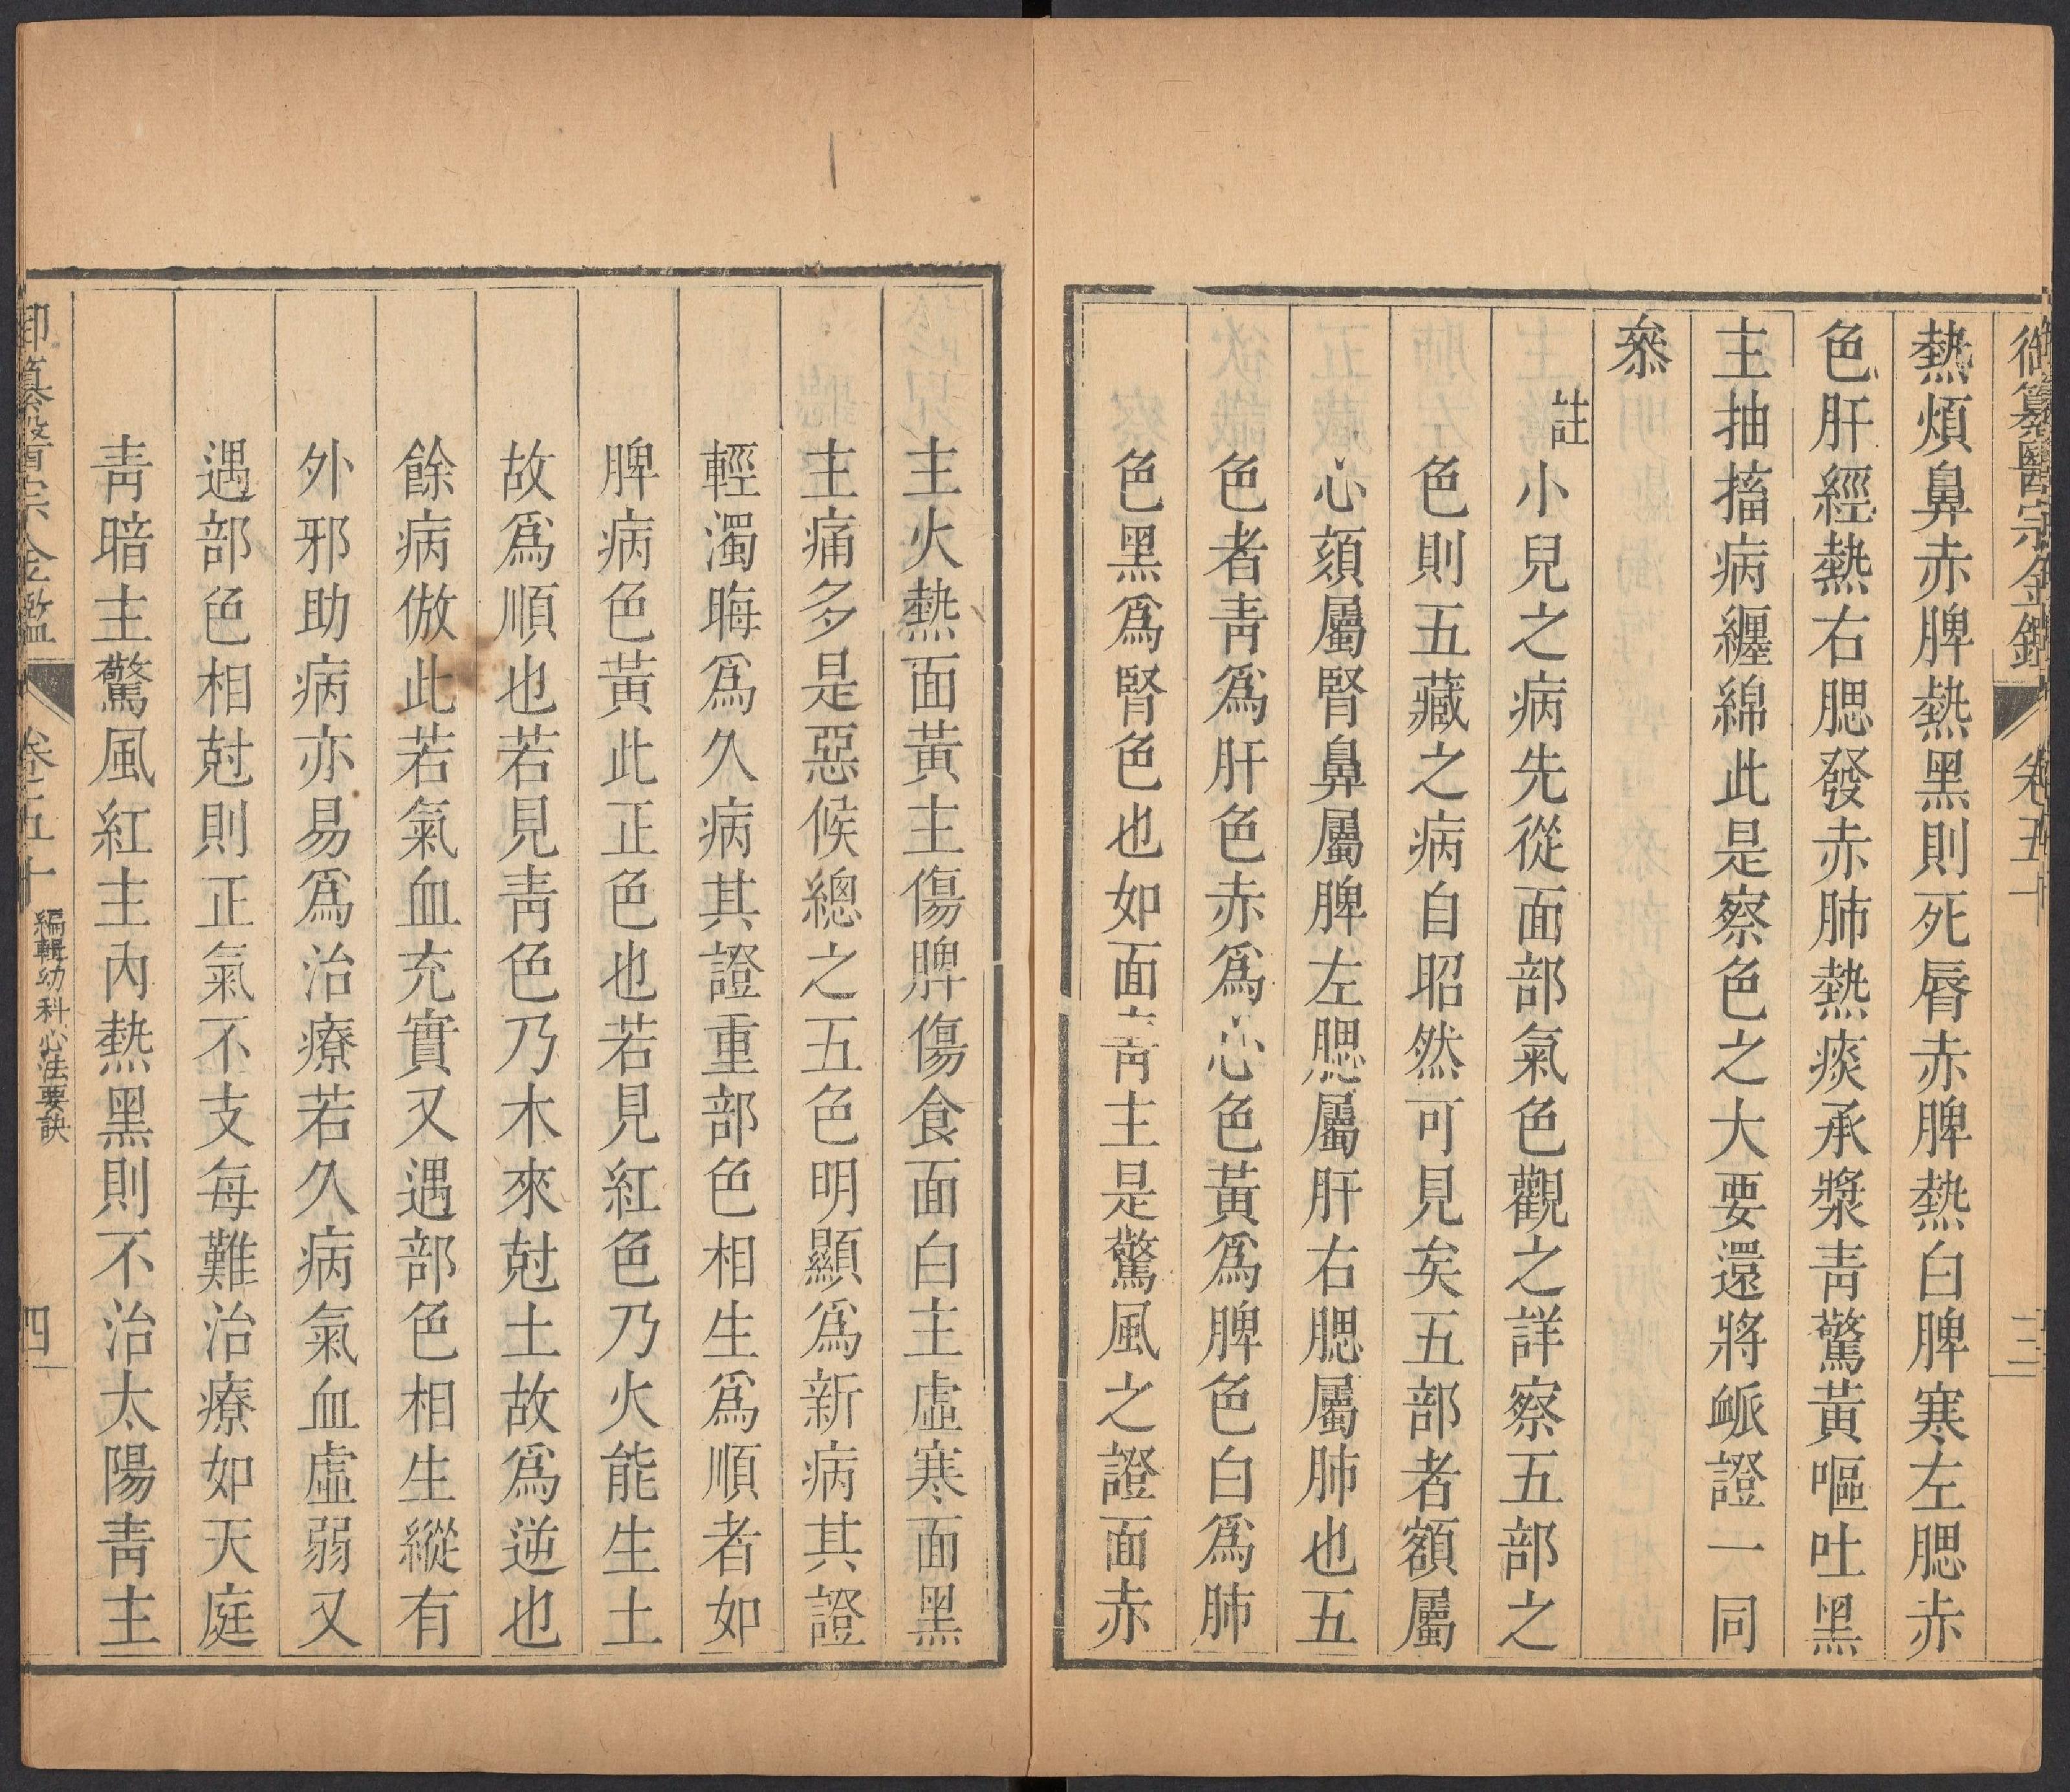 御纂醫宗金鑑 卷五十 三
熱煩鼻赤脾熱黑則死脣赤脾熱白脾寒左腮赤
色肝經熱右腮發赤肺熱痰承漿靑驚黃嘔吐黑
主抽搐病纏綿此是察色之大要還將衇證一同
叅
註小兒之病先從面部氣色觀之詳察五部之
色則五藏之病自昭然可見矣五部者額屬
心頦屬腎鼻屬脾左腮屬肝右腮屬肺也五
色者靑爲肝色赤爲心色黃爲脾色白爲肺
色黑爲腎色也如面靑主是驚風之證面赤
主火熱面黃主傷脾傷食面白主虛寒面黑
主痛多是惡候總之五色明顯爲新病其證
輕濁晦爲久病其證重部色相生爲順者如
脾病色黃此正色也若見紅色乃火能生土
故爲順也若見靑色乃木來尅土故爲逆也
餘病倣此若氣血充實又遇部色相生縱有
外邪助病亦易爲治療若久病氣血虛弱又
遇部色相尅則正氣不支每難治療如天庭
靑暗主驚風紅主內熱黑則不治太陽靑主
御纂醫宗金鑑 卷五十 編輯幼科心法要訣 四